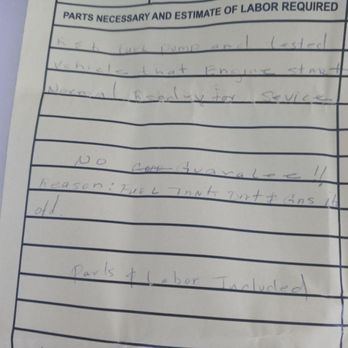 PARTS NECESSARY AND ESTIMATE OF LABOR REQUIRED
pump and tested
vehicle that Engine start
Normal. Ready for Sevice
NO
Reason: FUEL TANK
off.
Parts & Labor Included